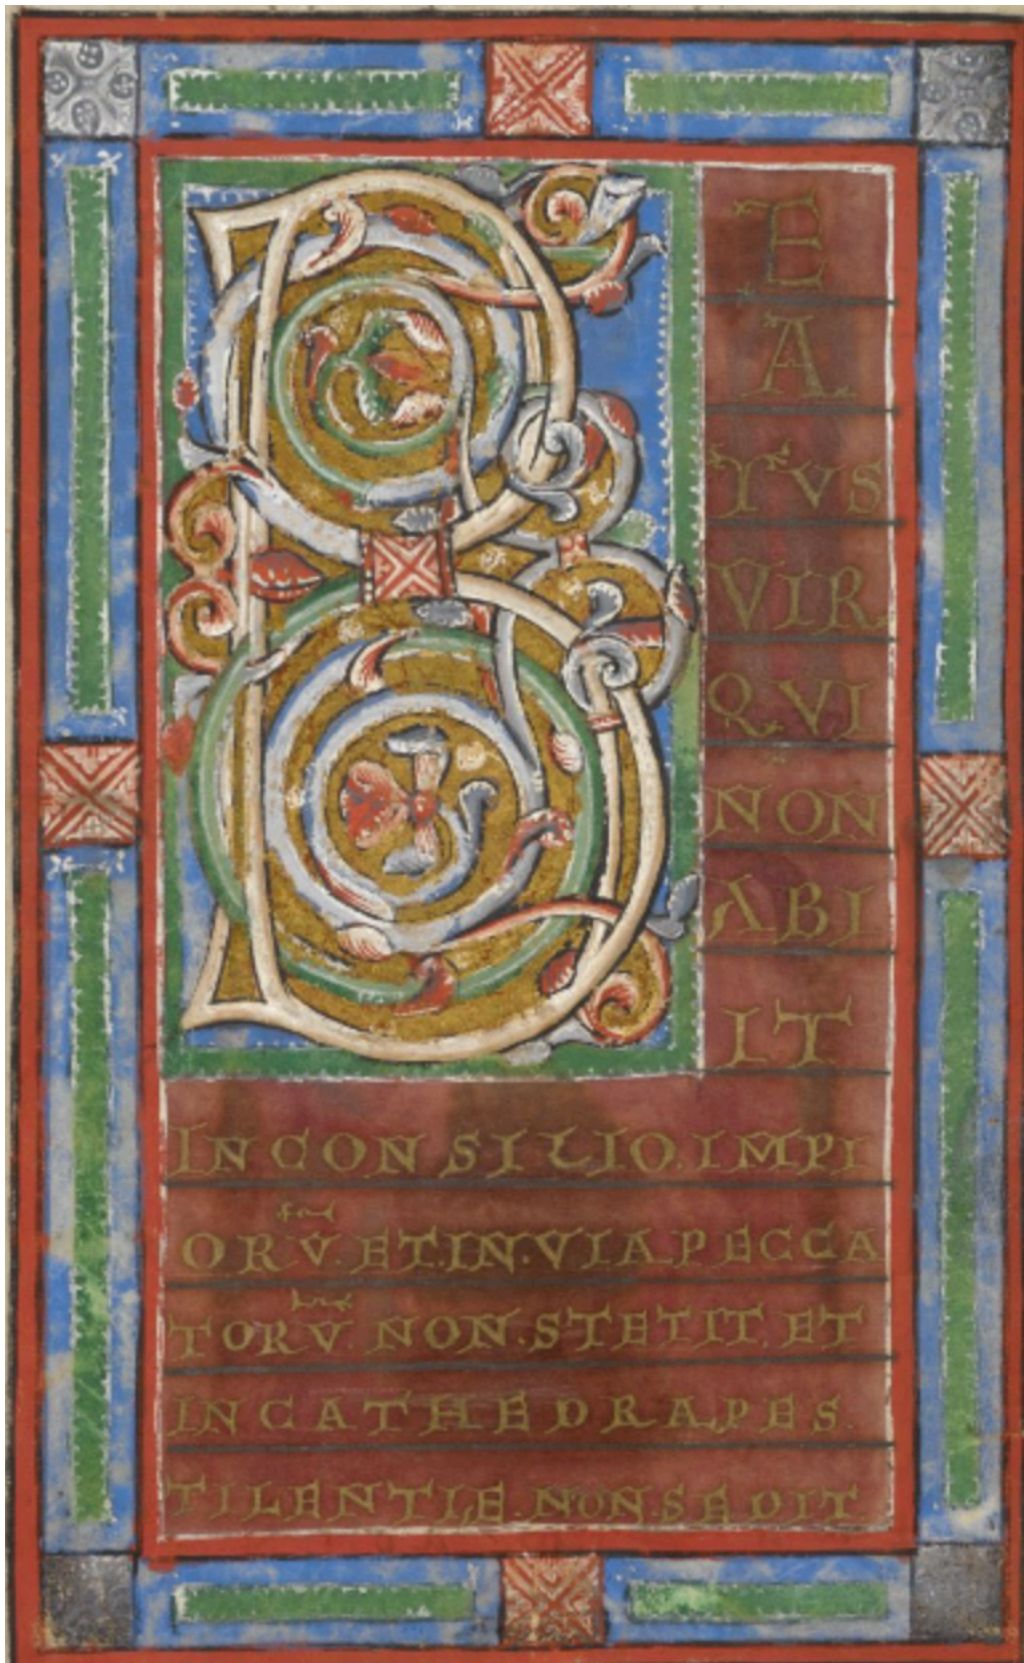 B
E
A
TVS
VIR
QVI
NON
ABI
IT
IN CONSILIO. IMPI
ORV̄. ET. IN. VIA PECCA
TORV̄. NON. STETIT. ET
IN CATHEDRA PES
TILENTIE. NON. SEDIT